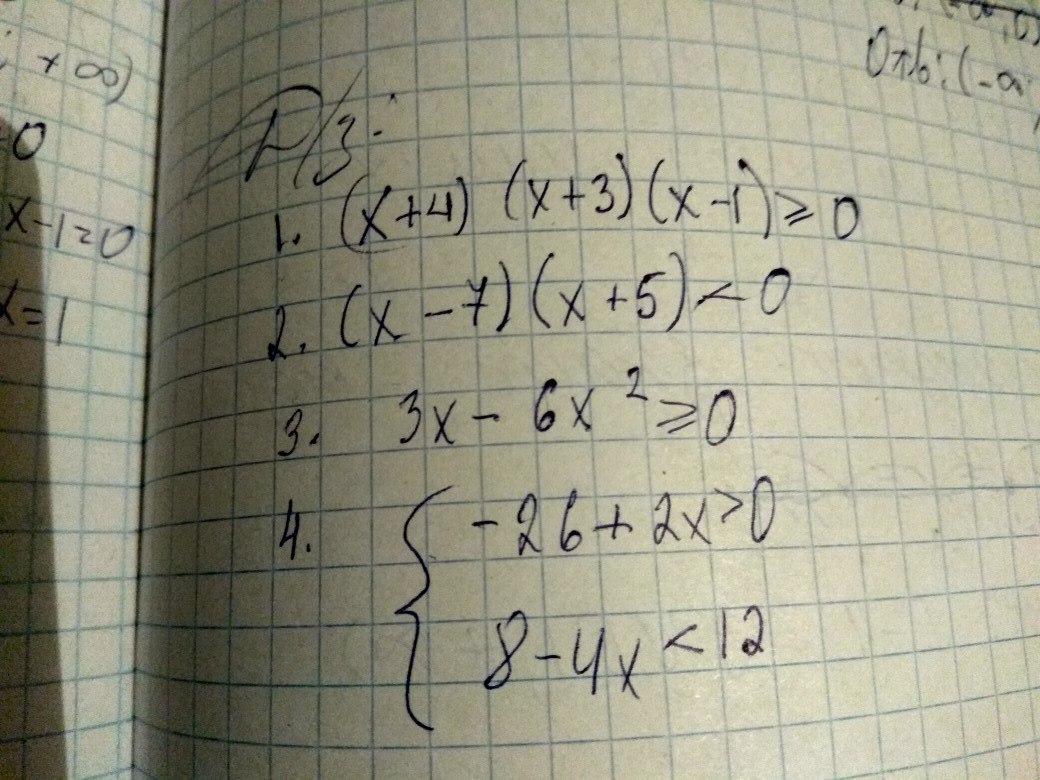 ; +∞)
0
x-1=0
x=1
Отв: (-∞;
Д/З:
1. (x+4) (x+3)(x-1)≥0
2. (x-7)(x+5)<0
3. 3x-6x²≥0
4. { -26+2x>0
8-4x<12